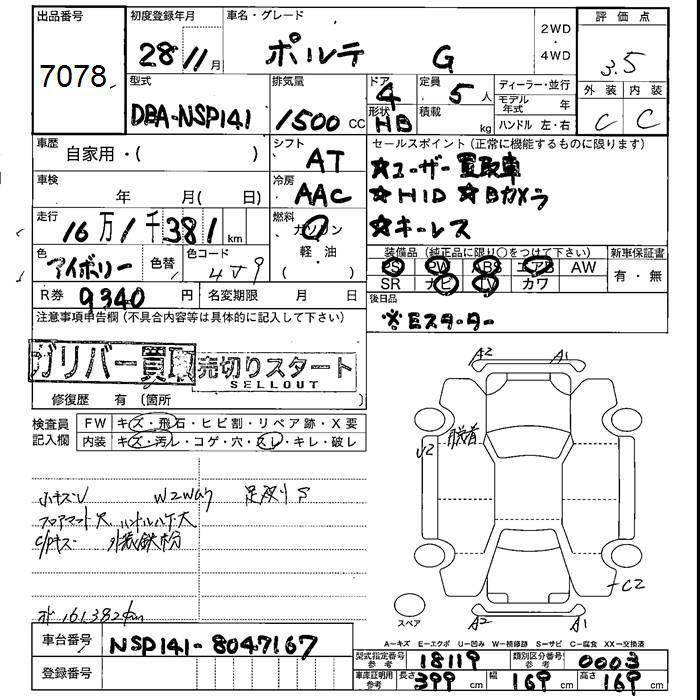 出品番号 初度登録年月 車名・グレード 2WD・4WD 評価点
7078 28 11月 ポルテ G 3.5
外装 内装
C C
型式 排気量 ドア 形状 定員 積載 ディーラー・並行
DBA-NSP141 1500CC 4 HB 5人 kg モデル年式 年
ハンドル 左・右
車歴 自家用・( ) シフト AT セールスポイント(正常に機能するものに限ります)
車検 年 月( 日) 冷房 AAC ☆ユーザー買取車
☆HID ☆Bカメラ
走行 16万1千381km 燃料 ガソリン 軽油・( ) ☆キーレス
色 アイボリー 色替 色コード 4J9 装備品(純正品に限り○をつけて下さい) 新車保証書
PS PW ABS エアB AW 有・無
SR ナビ TV カワ
R券 9340円 名変期限 月 日 後日品
注意事項申告欄(不具合内容等は具体的に記入して下さい) ※Eスターター
ガリバー買取 売切りスタート
SELLOUT
修復歴 有(箇所 )
検査員記入欄 FW キズ・飛石・ヒビ割・リペア跡・X要
内装 キズ・汚レ・コゲ・穴・スレ・キレ・破レ
A2 A1
U2
小キズU W2WAY
フロアマット穴 ハンドルハゲ大
C/Pキズ 外装鉄粉
C2
オド 161.382km
スペア
A2 A1
A-キズ E-エクボ U-凹み W-補修跡 S-サビ C-腐食 XX-交換済
車台番号 NSP141-8047167
型式指定番号 参考 18119 類別区分番号 参考 0003
登録番号
車庫証明用 参考 長さ 399cm 幅 169cm 高さ 169cm